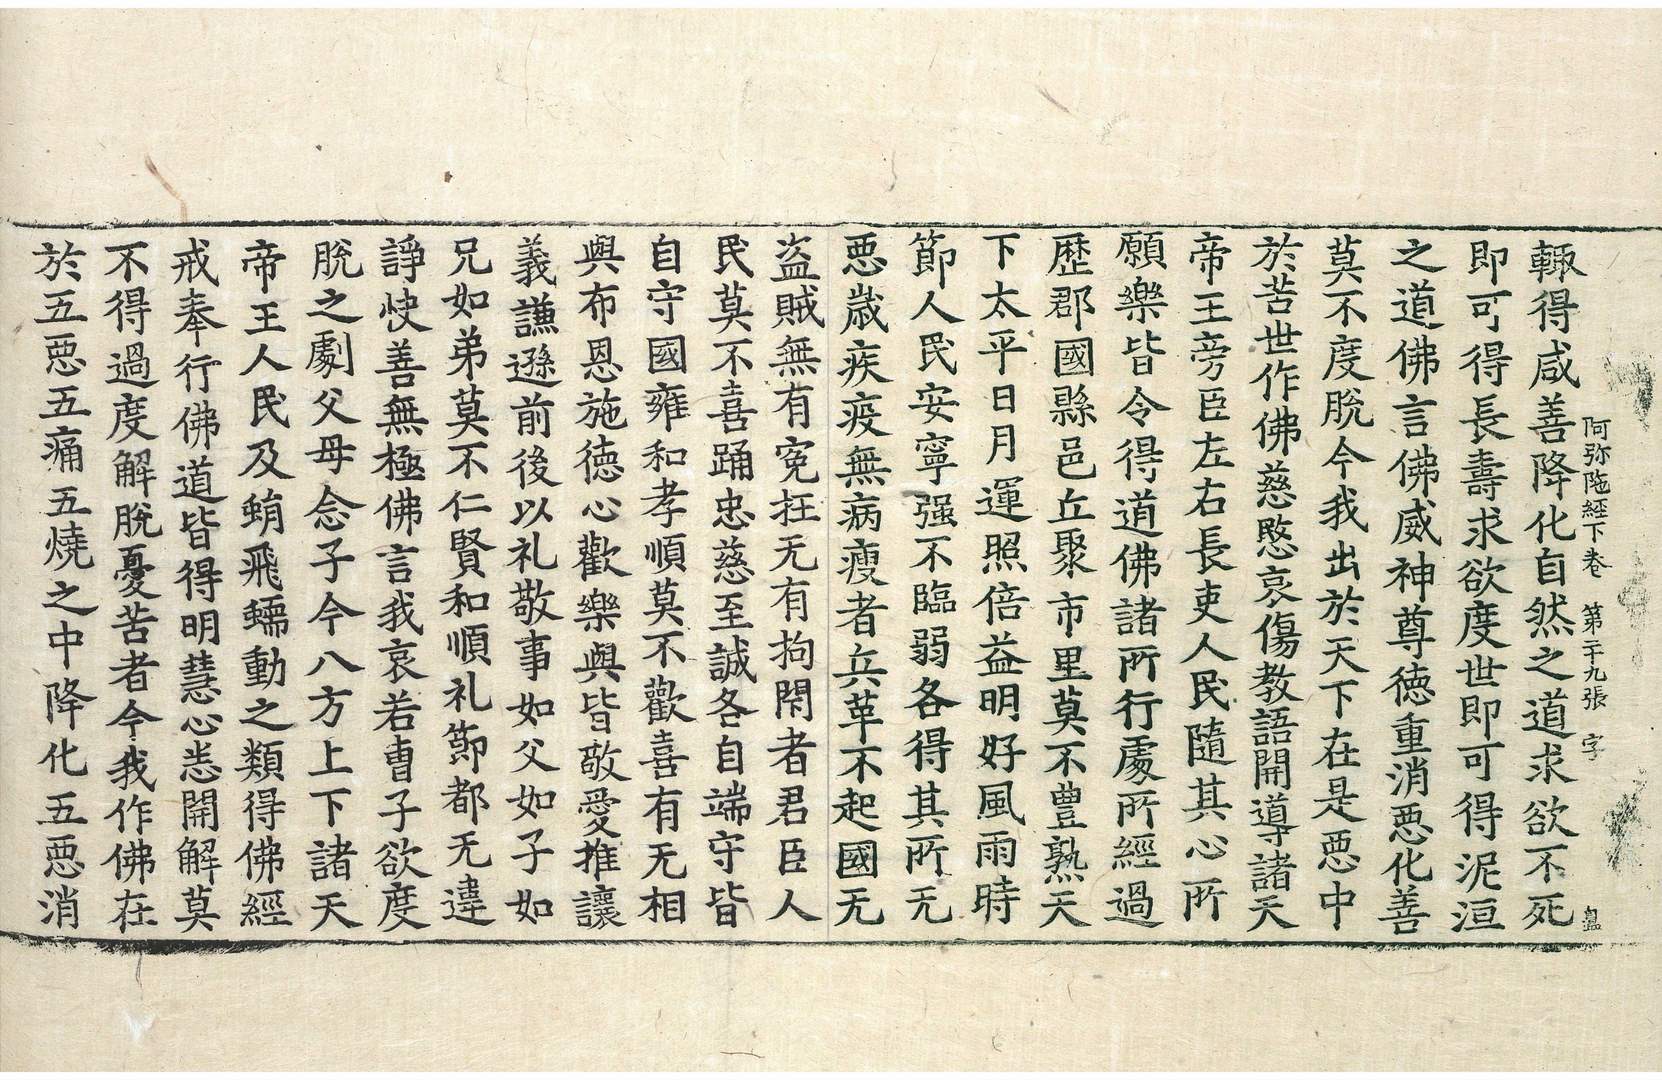 阿弥陁經下卷　第二十九張　字
輙得咸善降化自然之道求欲不死
即可得長壽求欲度世即可得泥洹
之道佛言佛威神尊德重消惡化善
莫不度脫今我出於天下在是惡中
於苦世作佛慈愍哀傷教語開導諸天
帝王旁臣左右長吏人民隨其心所
願樂皆令得道佛諸所行處所經過
歷郡國縣邑丘聚市里莫不豊熟天
下太平日月運照倍益明好風雨時
節人民安寧强不臨弱各得其所无
惡歲疾疫無病瘦者兵革不起國无
盗賊無有寃抂无有拘閇者君臣人
民莫不喜踊忠慈至誠各自端守皆
自守國雍和孝順莫不歡喜有无相
與布恩施德心歡樂與皆敬愛推讓
義謙遜前後以礼敬事如父如子如
兄如弟莫不仁賢和順礼節都无違
諍快善無極佛言我哀若曹子欲度
脫之劇父母念子今八方上下諸天
帝王人民及蜎飛蠕動之類得佛經
戒奉行佛道皆得明慧心悉開解莫
不得過度解脫憂苦者今我作佛在
於五惡五痛五燒之中降化五惡消